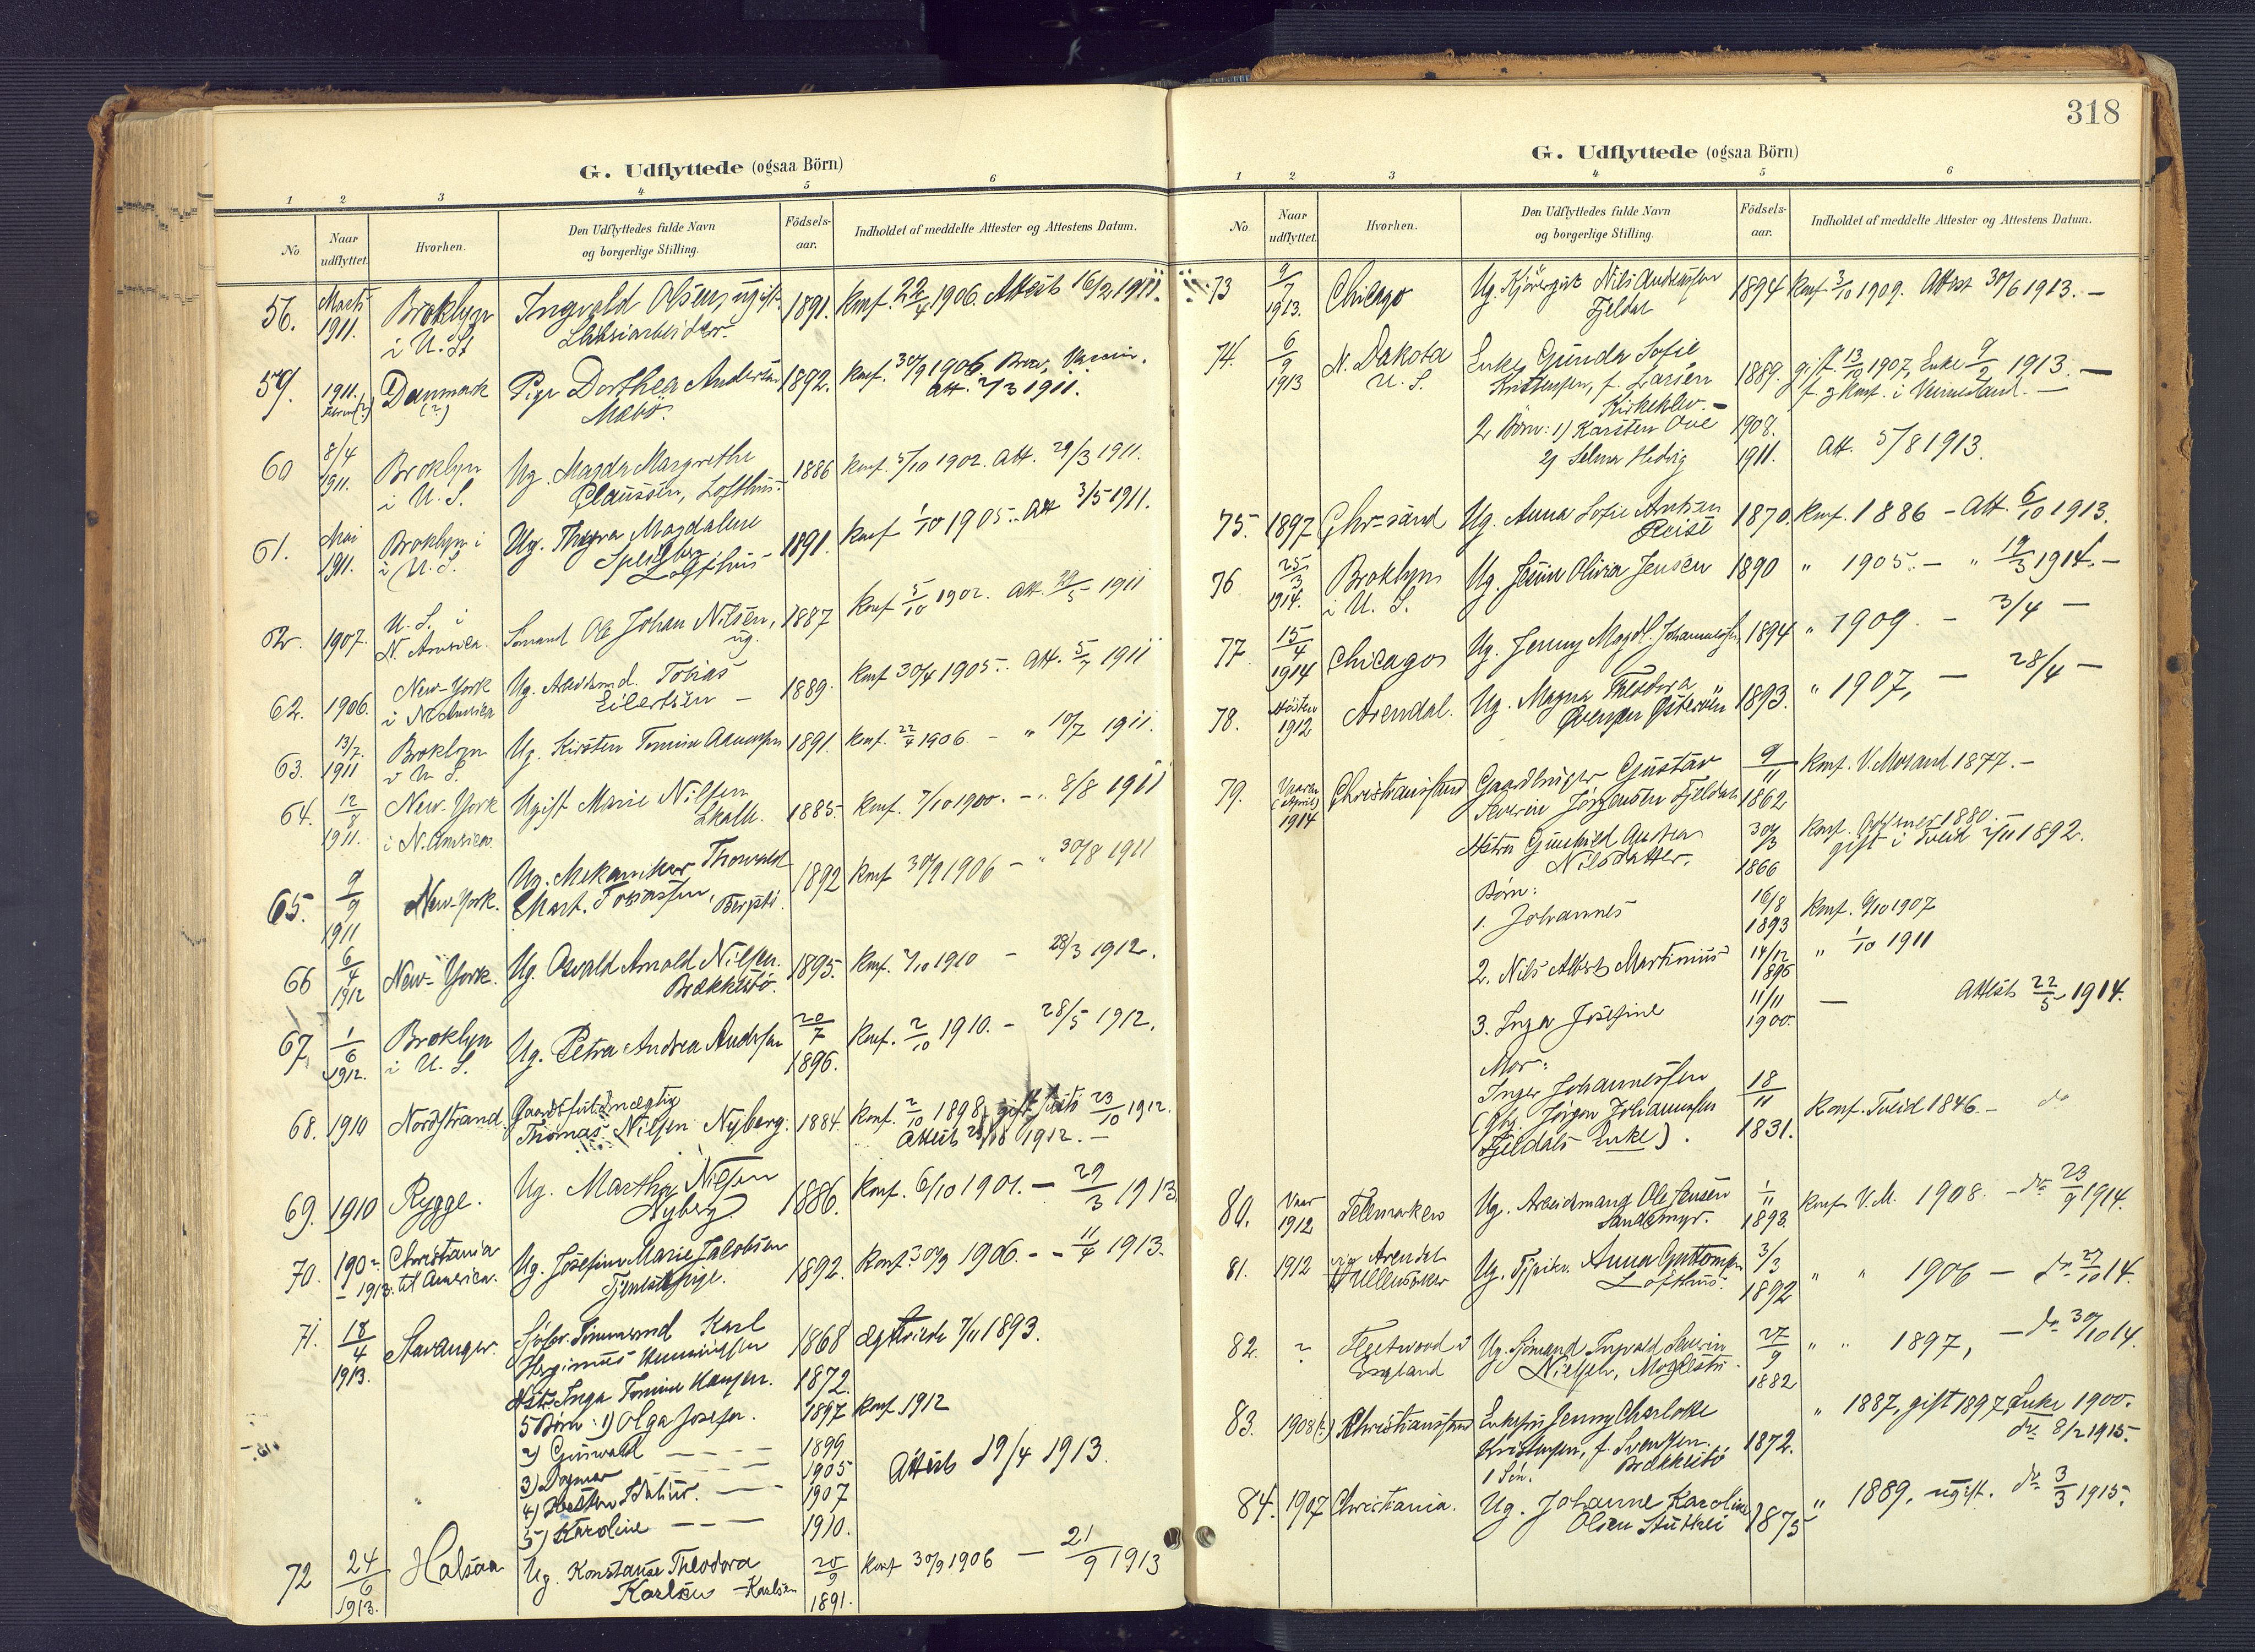 G. Udflyttede (ogsaa Börn)
1 2 3 4 5 6
No Naar udflyttet. Hvorhen. Den Udflyttedes fulde Navn og borgerlige Stilling. Födsels-aar. Indholdet af meddelte Attester og Attestens Datum.
56. Marts 1911. Broklyn i U. St Ingvald Olsen, ugift 1891. Konf. 22/4 1906. Attest 16/2 1911.
59. 1911. Danmark (?) Pige Dorthea Andersen 1892. Konf. 30/9 1906.
Att. 2/3 1911.
60 8/4 1911. Broklyn i U. S. Ug. Magda Margrethe Claussen, Lofthus 1886 Konf. 5/10 1902. Att. 29/3 1911.
61. Mai 1911. Broklyn i i U. S. Ug. Thyra Magdalene Lofthus 1891. Konf 1/10 1905. Att 3/5 1911.
62. 1907. U. S. i N. America. Sømand Ole Johan Nilsen, ug. 1887 Konf 5/10 1902. Att. 29/5 1911
62. 1906. New-York i N. America Ug. Arbeidsmd. Tobias Eilertsen – 1889. Konf 30/4 1905. Att. 5/7 1911
63. 13/7. 1911 Broklyn U. S. Ug. Kirsten Tomine 1891. Konf. 22/4 1906. – " 10/7 1911.
64. 12/8 1911. New-York i N. America Ugift Marie Nilsen 1885. Konf. 7/10 1900. – " 8/8 1911
65. 9/9 1911 New-York. Ug. Mekaniker Thorvald Mart. Tobiassen, 1892 Konf 30/9 1906 – " 30/8 1911
66 6/4 1912 New-York. Ug. Osvald Arnold Nilsen. Brækkestø. 1895. Konf. 2/10 1910 – 28/3 1912.
67. 1/6 1912. Broklyn i U. S. Ug. Petra Andrea Andersen 20/7 1896. Konf. 2/10 1910. – 28/5 1912.
68. 1910 Nordstrand. Thomas Nilsen Nyberg. 1884. Konf. 2/10 1898, gift 23/10 1912.
Attest 1912. –
69. 1910 Rygge. Ug. Martha Nilsen Nyberg 1886. Konf. 6/10 1901. – 29/3 1913
70. 1902 – 1913. Christiania til America. Ug. Josefine Marie Jacobsen Tjenestepige. 1892. Konf. 30/9 1906. – – 11/4 1913.
71. 18/4 1913. Stavanger. Tømmermd Karl 1868 Ægteviede 7/11 1893.
Hstr. Inga Tomine Hansen. 1872.
5 Børn: 1) Olga Josefa. 1897 Konf 1912
2) Gunvald – – – 1899
3) Dagmar – – – 1905 Attest 19/4 1913.
4) 1907
5) Karoline – – – 1910.
72 24/6 1913. Halsaa Ug. Konstanse Theodora Karlsen – Karlsen 20/9 1891. Konf 30/9 1906 – 21/9 1913
318
G. Udflyttede (ogsaa Börn)
1 2 3 4 5 6
No Naar udflyttet. Hvorhen. Den Udflyttedes fulde Navn og borgerlige Stilling. Födsels-aar. Indholdet af meddelte Attester og Attestens Datum.
73 9/7 1913. Chicago Ug. Nils Andreassen Fjeldal 1894 Konf 3/10 1909. Attest 30/6 1913. –
74. 6/9 1913 N. Dakota U. S. Enke Gunda Sofie 1889. gift 13/10 1907, Enke 9/2 1913. –
Kristensen, f. Larsen
Kirkeklev. –
2 Børn: 1) Karsten Ove 1908.
2) Selma Hedvig 1911. Att. 5/8 1913.
75. 1897 Chr-sand Ug. Anna Sofie Arntsen 1870. Konf. 1886 – Att. 6/10 1913.
76 25/3 1914. Broklyn i U. S. Ug. Olivia Jensen 1890 " 1905. – " 19/3 1914. –
77. 15/4 1914 Chicago Ug. Jenny Magdl. 1894 " 1909. – 3/4 –
78. Høsten 1912 Arendal. Ug. Magna Theodora 1893. " 1907, – 28/4 –
79. Vaaren (April) 1914 Christianssand Gaardbruger Gustav Severin Jørgensen Fjeldal 9/11 1862 Konf. V. Moland 1877. –
Hstru Gunhild Andrea Nilsdatter. 30/3 1866 Konf. 1880. –
gift i Tveid 2/11 1892.
Børn:
1. Johannes 16/8 1893 Konf. 6/10 1907
2. Nils Albert Martinius 14/12 1895 " 1/10 1911
3. Inga Josefine 11/11 1900. – Attest 22/5 1914.
Mor:
Inger Johannessen 18/11 1831. Konf. Tveid 1846 – do
(Gbr. Jørgen Johannessen
Fjeldals Enke).
80. Vaar 1912 Telemarken Ug. Arbeidsmand Ole Jensen Sandsmyr. 1/11 1893 Konf. V. M. 1908. – do 23/9 1914.
81. 1912 Arendal Ullensaker Ug. Anna Guttormsen Lofthus. 3/3 1892 " " 1906 – do 27/10 14.
82. ? Fleetwood i England Ug. Sømand Ingvald Severin Nielsen, 27/9 1882 " " 1897, – do 30/10 14.
83. 1908 (?) Christianssand Enkefru Jenny Charlotte Kristensen, f. Svendsen. Brækkestø 1872. " 1887, gift 1897, Enke 1900.
1 Søn. do 8/2 1915.
84. 1907 Christiania. Ug. Johanne Karoline Olsen 1875 " 1889. ugift. do 3/3 1915.